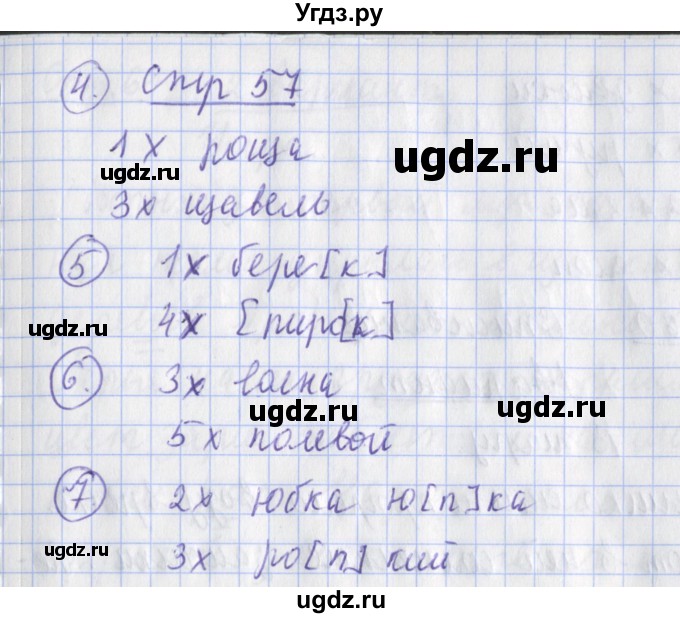 Угдз.ру
4. Стр 57
1 х роща
ugdz.ru
ugdz.ru
3х щавель
5 1х бере[к]
4х [пиро[к]
ugdz.ru
6. 3х волна
ugdz.ru
ugdz.ru
5 х полевой
7. 2х юбка ю[п]ка
3х ро[п]кий
ugdz.ru
ugdz.ru